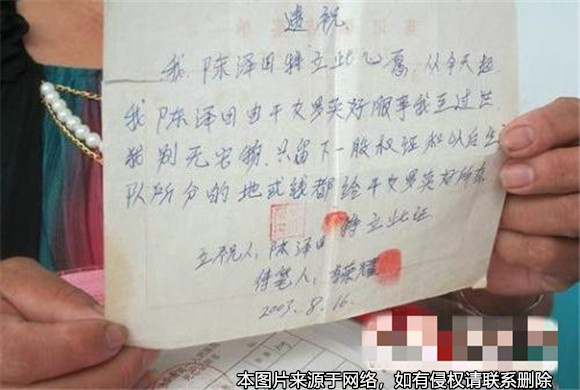 遗祝
我陈泽田特立此心愿，从今天起
我陈泽田由干女英好服事我至过世
我别无它物，只留下一股权证和以后生
队所分的地或钱都给干女英好所有
特立此证
立祝人，陈泽田
代笔人，荣耀
2003.8.16.
本图片来源于网络，如有侵权请联系删除